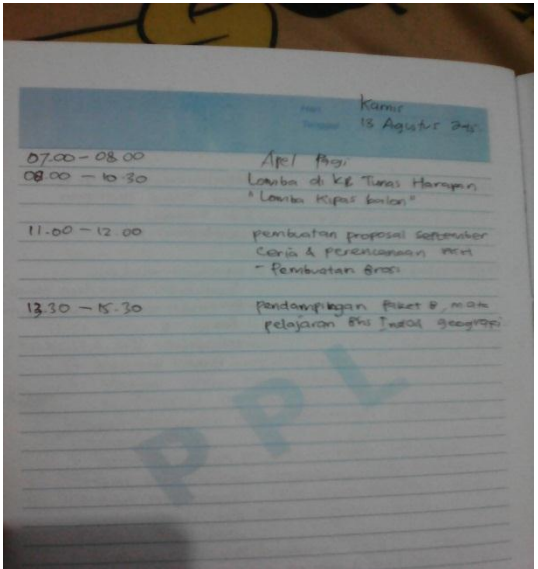 Hari Kamis
Tanggal 13 Agustus 2015
07.00 - 08.00 Apel Pagi
08.00 - 10.30 Lomba di KB Tunas Harapan
"Lomba Kipas balon"
11.00 - 12.00 pembuatan proposal september
Ceria & perencanaan
- Pembuatan
13.30 - 15.30 pendampingan Paket B, mata
pelajaran Bhs geografi
PPL